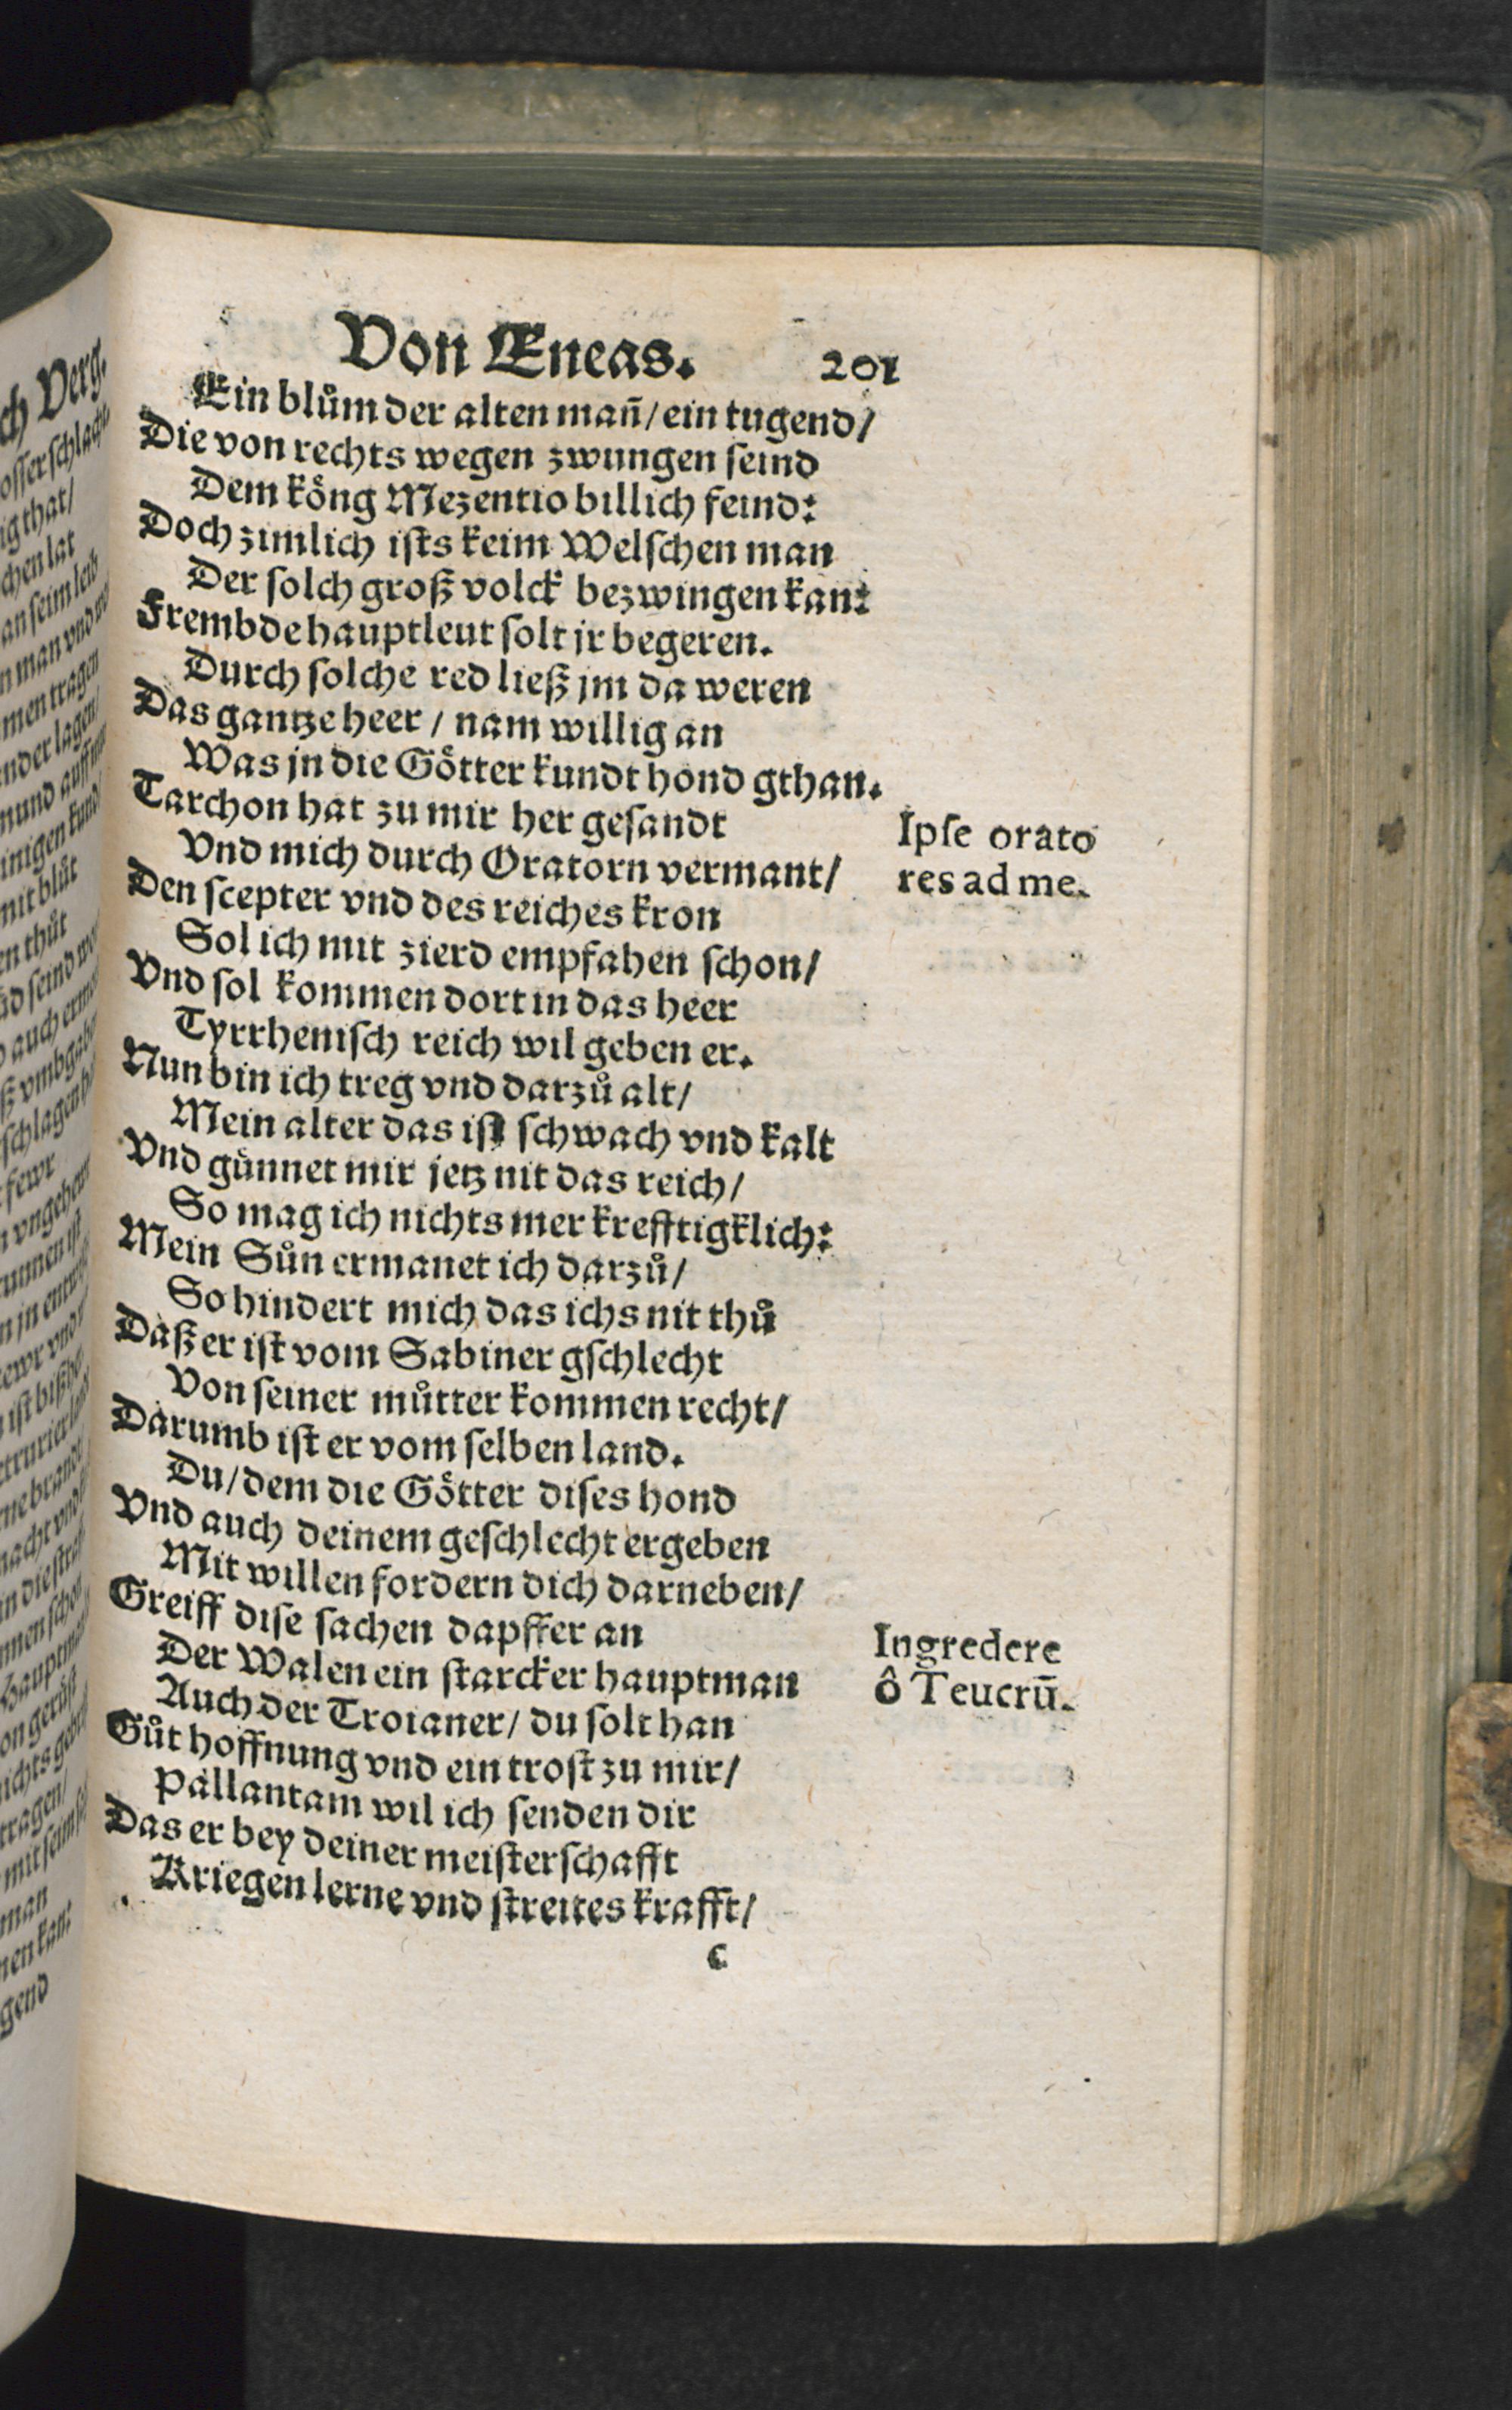 Von Æneas. 201
Ein blům der alten mañ/ ein tugend/
Die von rechts wegen zwungen seind
Dem köng Mezentio billich feind:
Doch zimlich ists keim Welschen man
Der solch groß volck bezwingen kan:
Frembde hauptleut solt jr begeren.
Durch solche red ließ jm da weren
Das gantze heer / nam willig an
Was jn die Götter kundt hond gthan.
Tarchon hat zu mir her gesandt
Ipse orato
Vnd mich durch Oratorn vermant/
res ad me.
Den scepter vnd des reiches kron
Sol ich mit zierd empfahen schon/
Vnd sol kommen dort in das heer
Tyrrhenisch reich wil geben er.
Nun bin ich treg vnd darzů alt/
Mein alter das ist schwach vnd kalt
Vnd günnet mir jetz nit das reich/
So mag ich nichts mer krefftigklich:
Mein Sůn ermanet ich darzů/
So hindert mich das ichs nit thů
Daß er ist vom Sabiner gschlecht
Von seiner můtter kommen recht/
Darumb ist er vom selben land.
Du/ dem die Götter dises hond
Vnd auch deinem geschlecht ergeben
Mit willen fordern dich darneben/
Greiff dise sachen dapffer an
Ingredere
Der Walen ein starcker hauptman
ô Teucrũ.
Auch der Troianer/ du solt han
Gůt hoffnung vnd ein trost zu mir/
Pallantam wil ich senden dir
Das er bey deiner meisterschafft
Kriegen lerne vnd streites krafft/
C